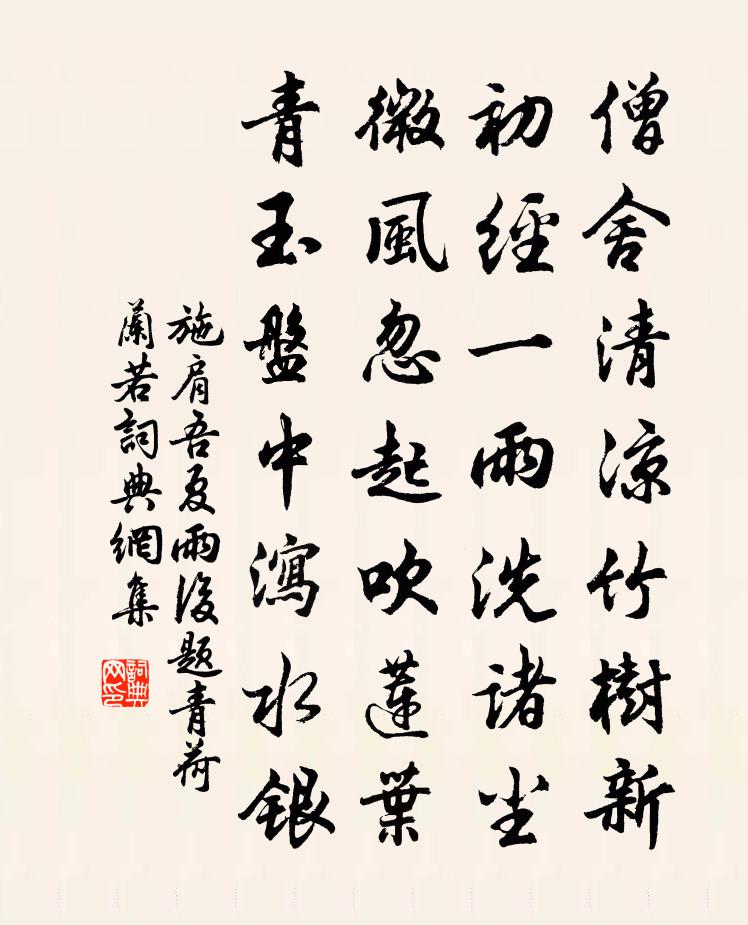 僧舍清涼竹樹新
初經一雨洗諸尘
微風忽起吹蓮葉
青玉盤中瀉水銀
施肩吾夏雨後題青荷
蘭若詞典網集
詞典
网印